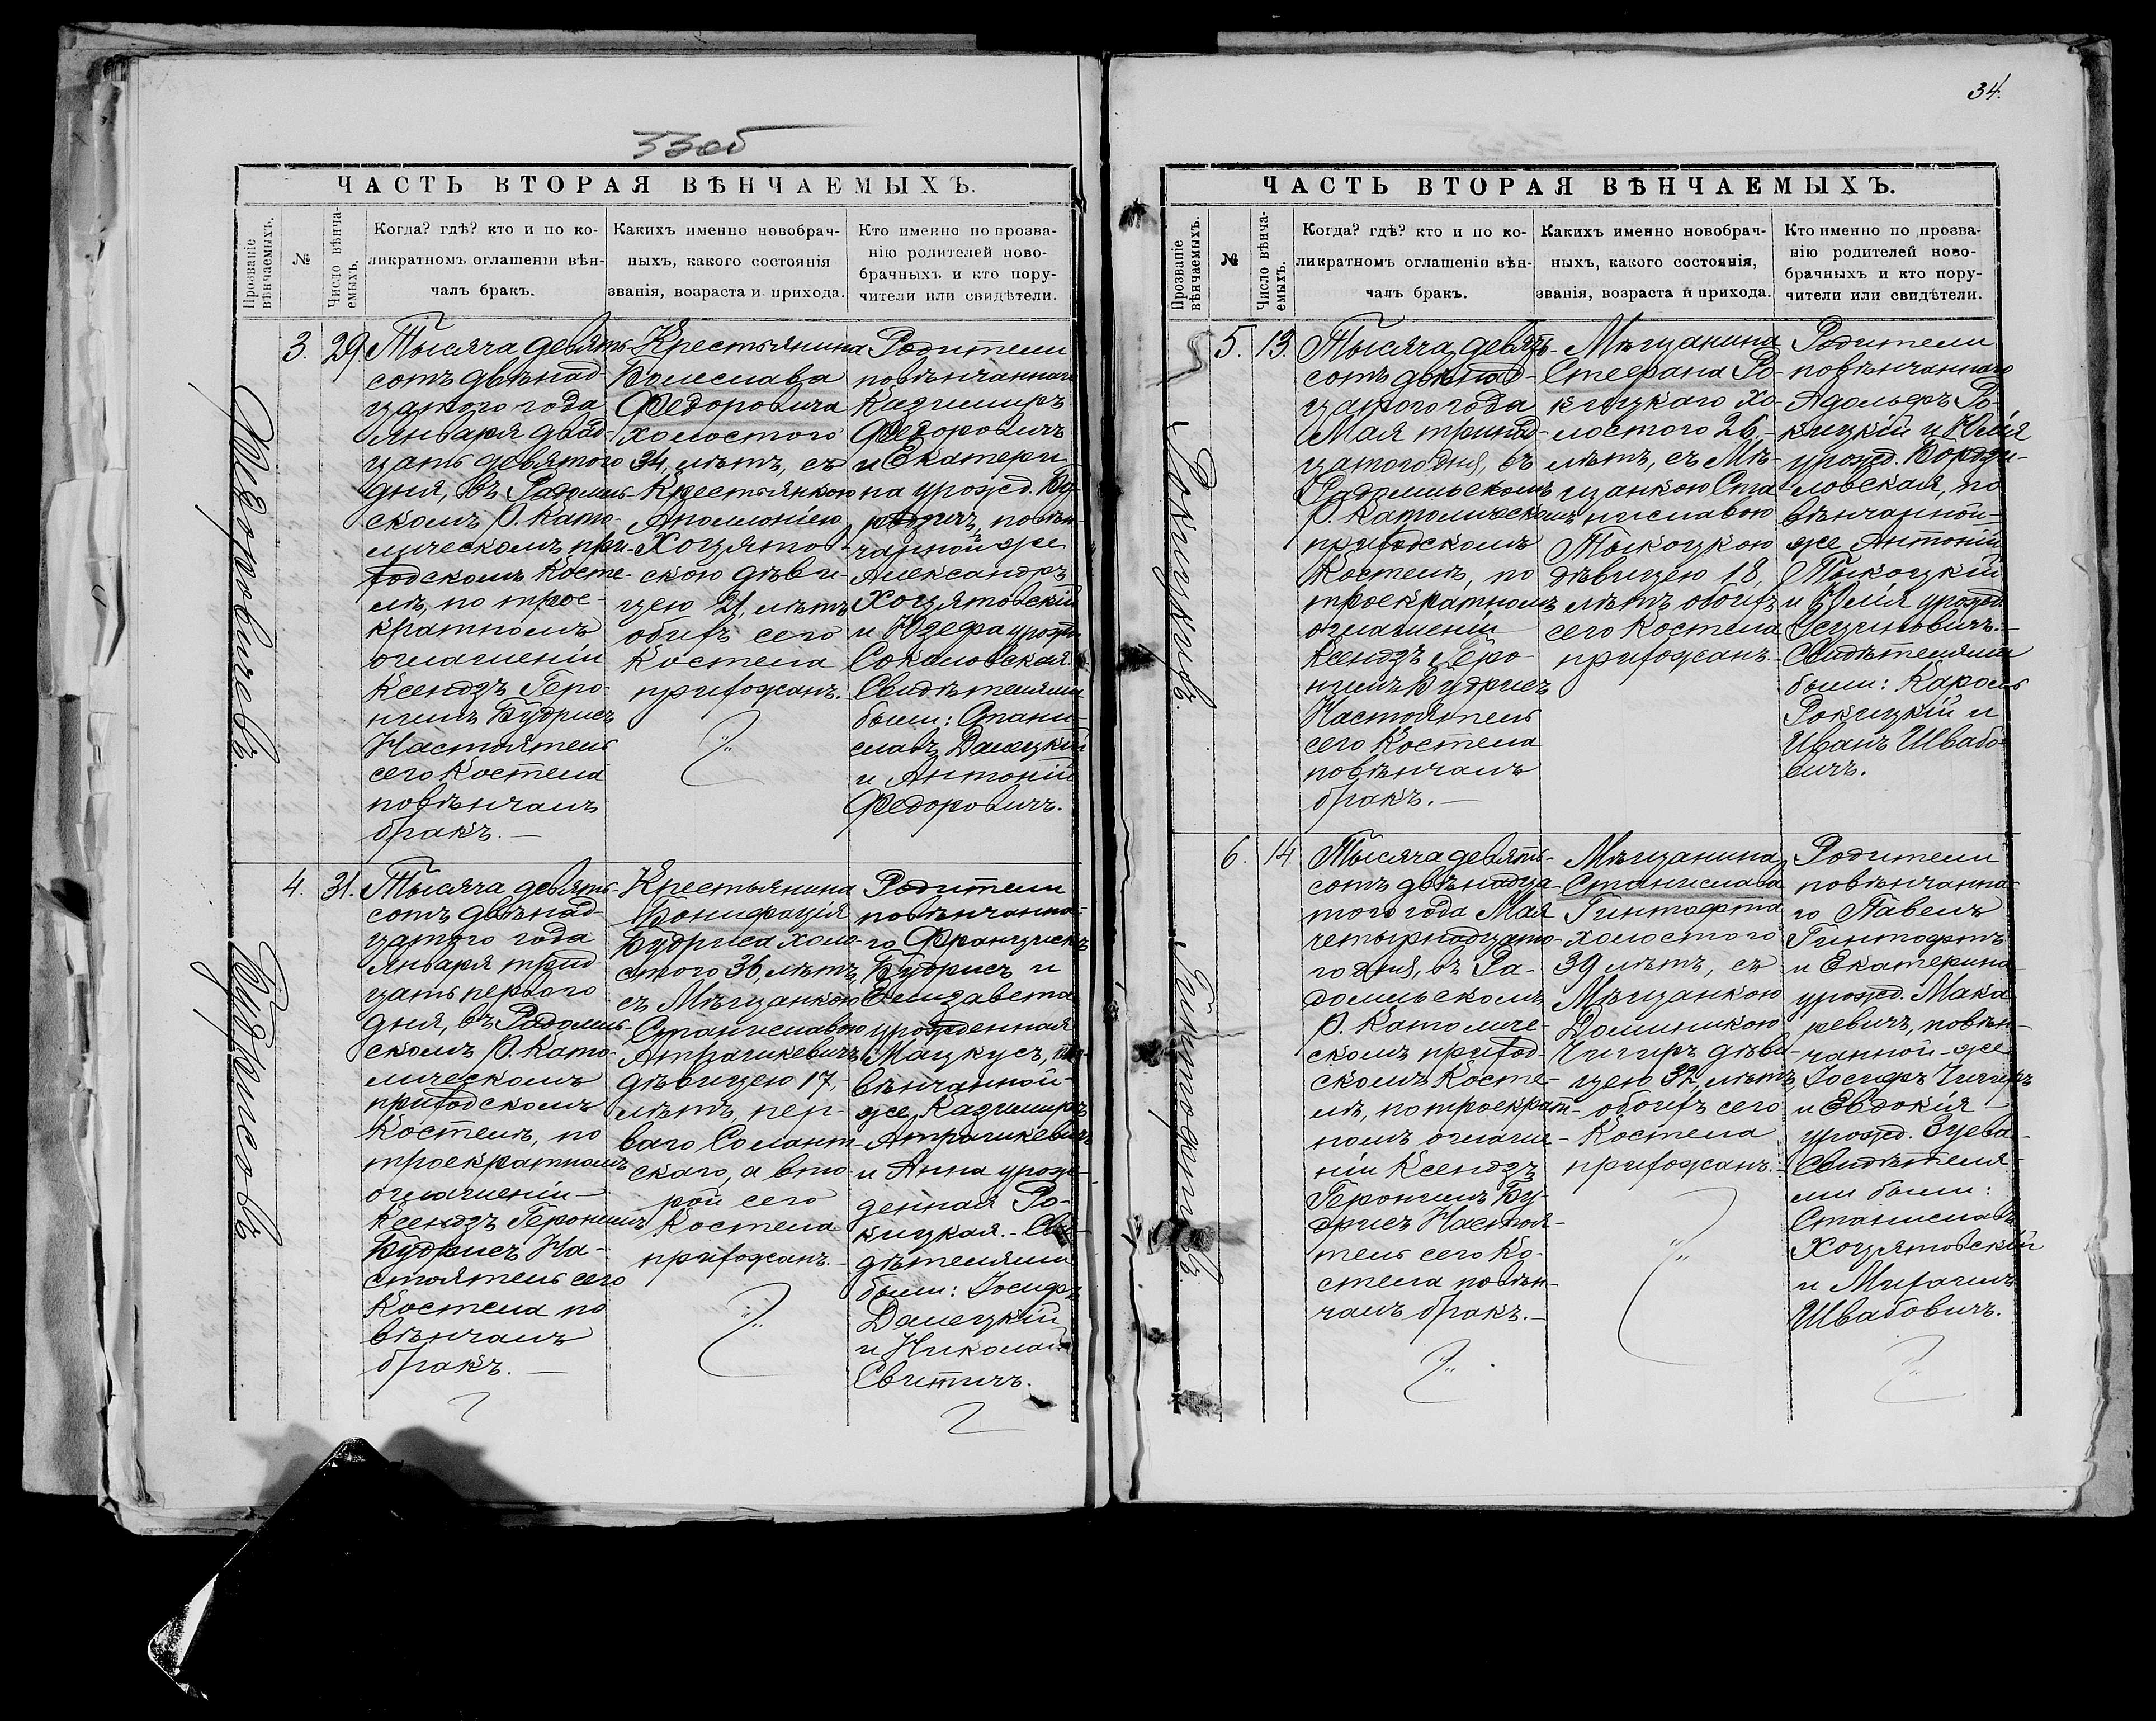 33об
ЧАСТЬ ВТОРАЯ ВѢНЧАЕМЫХЪ.
Прозваніе вѣнчаемыхъ.
№
Число вѣнчаемыхъ.
Когда? гдѣ? кто и по ко-
ликратномъ оглашеніи вѣн-
чалъ бракъ.
Какихъ именно новобрач-
ныхъ, какого состоянія
званія, возраста и прихода.
Кто именно по прозва-
нію родителей ново-
брачныхъ и кто пору-
чители или свидѣтели.
Федоровичевъ.
3.
29.
Тысяча девять-
сотъ двѣнад-
цатого года
Января двад-
цать девятого
дня, въ Радомль-
скомъ Р. Като-
лическомъ при-
ходскомъ Косте-
лѣ, по трое-
кратномъ
оглашеніи
Ксендзъ Геро-
нимъ Будрисъ
Настоятель
сего Костела
повѣнчалъ
бракъ.—
Крестьянина
Болеслава
Федоровича
холостого
34, лѣтъ, съ
Крестьянкою
Аполлоніею
Хоцятов-
скою дѣви-
цею 21, лѣтъ
обоихъ сего
Костела
прихожанъ.—
Родители
повѣнчаннаго
Казимиръ
Федоровичъ
и Екатери
на урожд.
повѣн-
чанной же
Александръ
Хоцятовскій
и Юзефа урожд.
Соколовская.
Свидѣтелями
были: Стани-
славъ Далецкій
и Антоній
Федоровичъ.
Будрисовъ
4.
31.
Тысяча девять-
сотъ двѣнад-
цатого года
Января трид-
цать перваго
дня, въ Радомль-
скомъ Р. Като-
лическомъ
приходскомъ
Костелѣ, по
троекратномъ
оглашеніи—
Ксендзъ Геронимъ
Будрисъ На-
стоятель сего
Костела по
вѣнчалъ
бракъ.—
Крестьянина
Бонифація
Будриса холо-
стого 36, лѣтъ,
съ Мѣщанкою
Станиславою
Атрашкевичъ
дѣвицею 17,-
лѣтъ, пер-
ваго Солант-
скаго, а вто-
рой сего
Костела
прихожанъ.—
Родители
повѣнчанна-
го Францискъ
Будрисъ и
Елизавета
урожденная
Мацкусъ, по-
вѣнчанной-
же Казимиръ
Атрашкевичъ
и Анна урож-
денная Ро-
кицкая.- Сви-
дѣтелями
были: Іосифъ
Далецкій
и Николай
Свитичъ.
34.
ЧАСТЬ ВТОРАЯ ВѢНЧАЕМЫХЪ.
Прозваніе вѣнчаемыхъ.
№
Число вѣнчаемыхъ.
Когда? гдѣ? кто и по ко-
ликратномъ оглашеніи вѣн-
чалъ бракъ.
Какихъ именно новобрач-
ныхъ, какого состоянія,
званія, возраста и прихода.
Кто именно по прозва-
нію родителей ново-
брачныхъ и кто пору-
чители или свидѣтели.
Рокицкихъ.
5.
13.
Тысяча девять-
сотъ двѣнад-
цатого года
Мая тринад-
цатого дня, въ
Радомльскомъ
Р. Католическомъ
приходскомъ
Костелѣ, по
троекратномъ
оглашеніи
Ксендзъ Геро-
нимъ Будрисъ
Настоятель
сего Костела
повѣнчалъ
бракъ.—
Мѣщанина
Стефана Ро-
кицкаго хо-
лостого 26,-
лѣтъ, съ Мѣ-
щанкою Ста-
ниславою
Тыкоцкою
дѣвицею 18,
лѣтъ обоихъ
сего Костела
прихожанъ.-
Родители
повѣнчаннаго
Адольфъ Ро-
кицкій и Юлія
урожд.
по
вѣнчанной-
же Антоній
Тыкоцкій
и Юлія урожд.
Свидѣтелями
были: Кароль
Рокицкій и
Иванъ Швабо-
вичъ.
Гинтофтовъ.
6.
14.
Тысяча девять-
сотъ двѣнадца-
того года Мая
четырнадцато-
го дня, въ Ра-
домльскомъ
Р. Католиче-
скомъ приход-
скомъ Косте-
лѣ, по троекрат-
номъ оглаше-
ніи Ксендзъ
Геронимъ Бу-
дрисъ Настоя-
тель сего Ко-
стела повѣн-
чалъ бракъ.—
Мѣщанина
Станислава
Гинтофта
холостого
39 лѣтъ, съ
Мѣщанкою
Доминикою
Чигиръ дѣви-
цею 32, лѣтъ
обоихъ сего
Костела
прихожанъ.-
Родители
повѣнчанна-
го Павелъ
Гинтофтъ
и Екатерина
урожд. Мака-
ревичъ, повѣн-
чанной-же
Іосифъ Чигиръ
и Евдокія
урожд. Зуева-
Свидѣтеля-
ми были:
Станиславъ
Хоцятовскій
и Михаилъ
Швабовичъ.